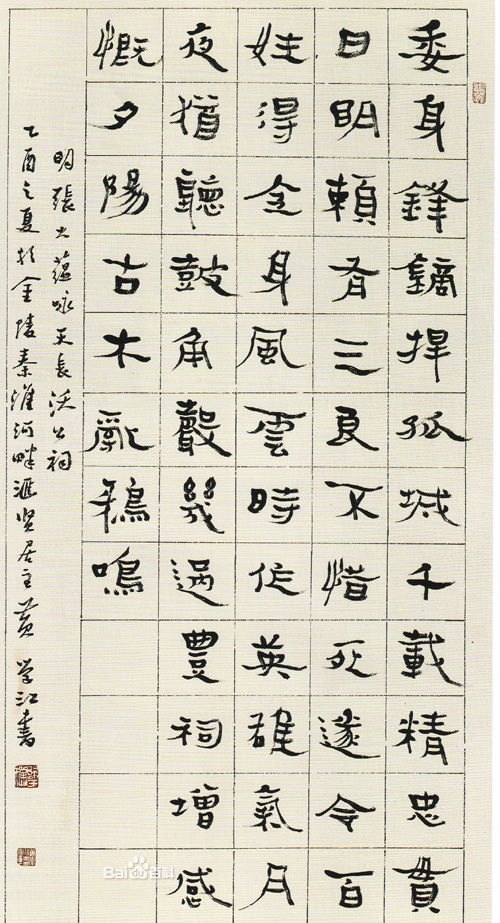 委身鋒鏑捍孤城千載精忠貫
日明賴有三良不惜死遂令百
姓得全身風雲時作英雄氣月
夜猶聽鼓角聲幾過豊祠增感
慨夕陽古木亂鴉鳴
明張大蘊咏天長沃公祠
乙酉之夏於金陵秦淮河畔滙贤居主黄学江書
Bai百科